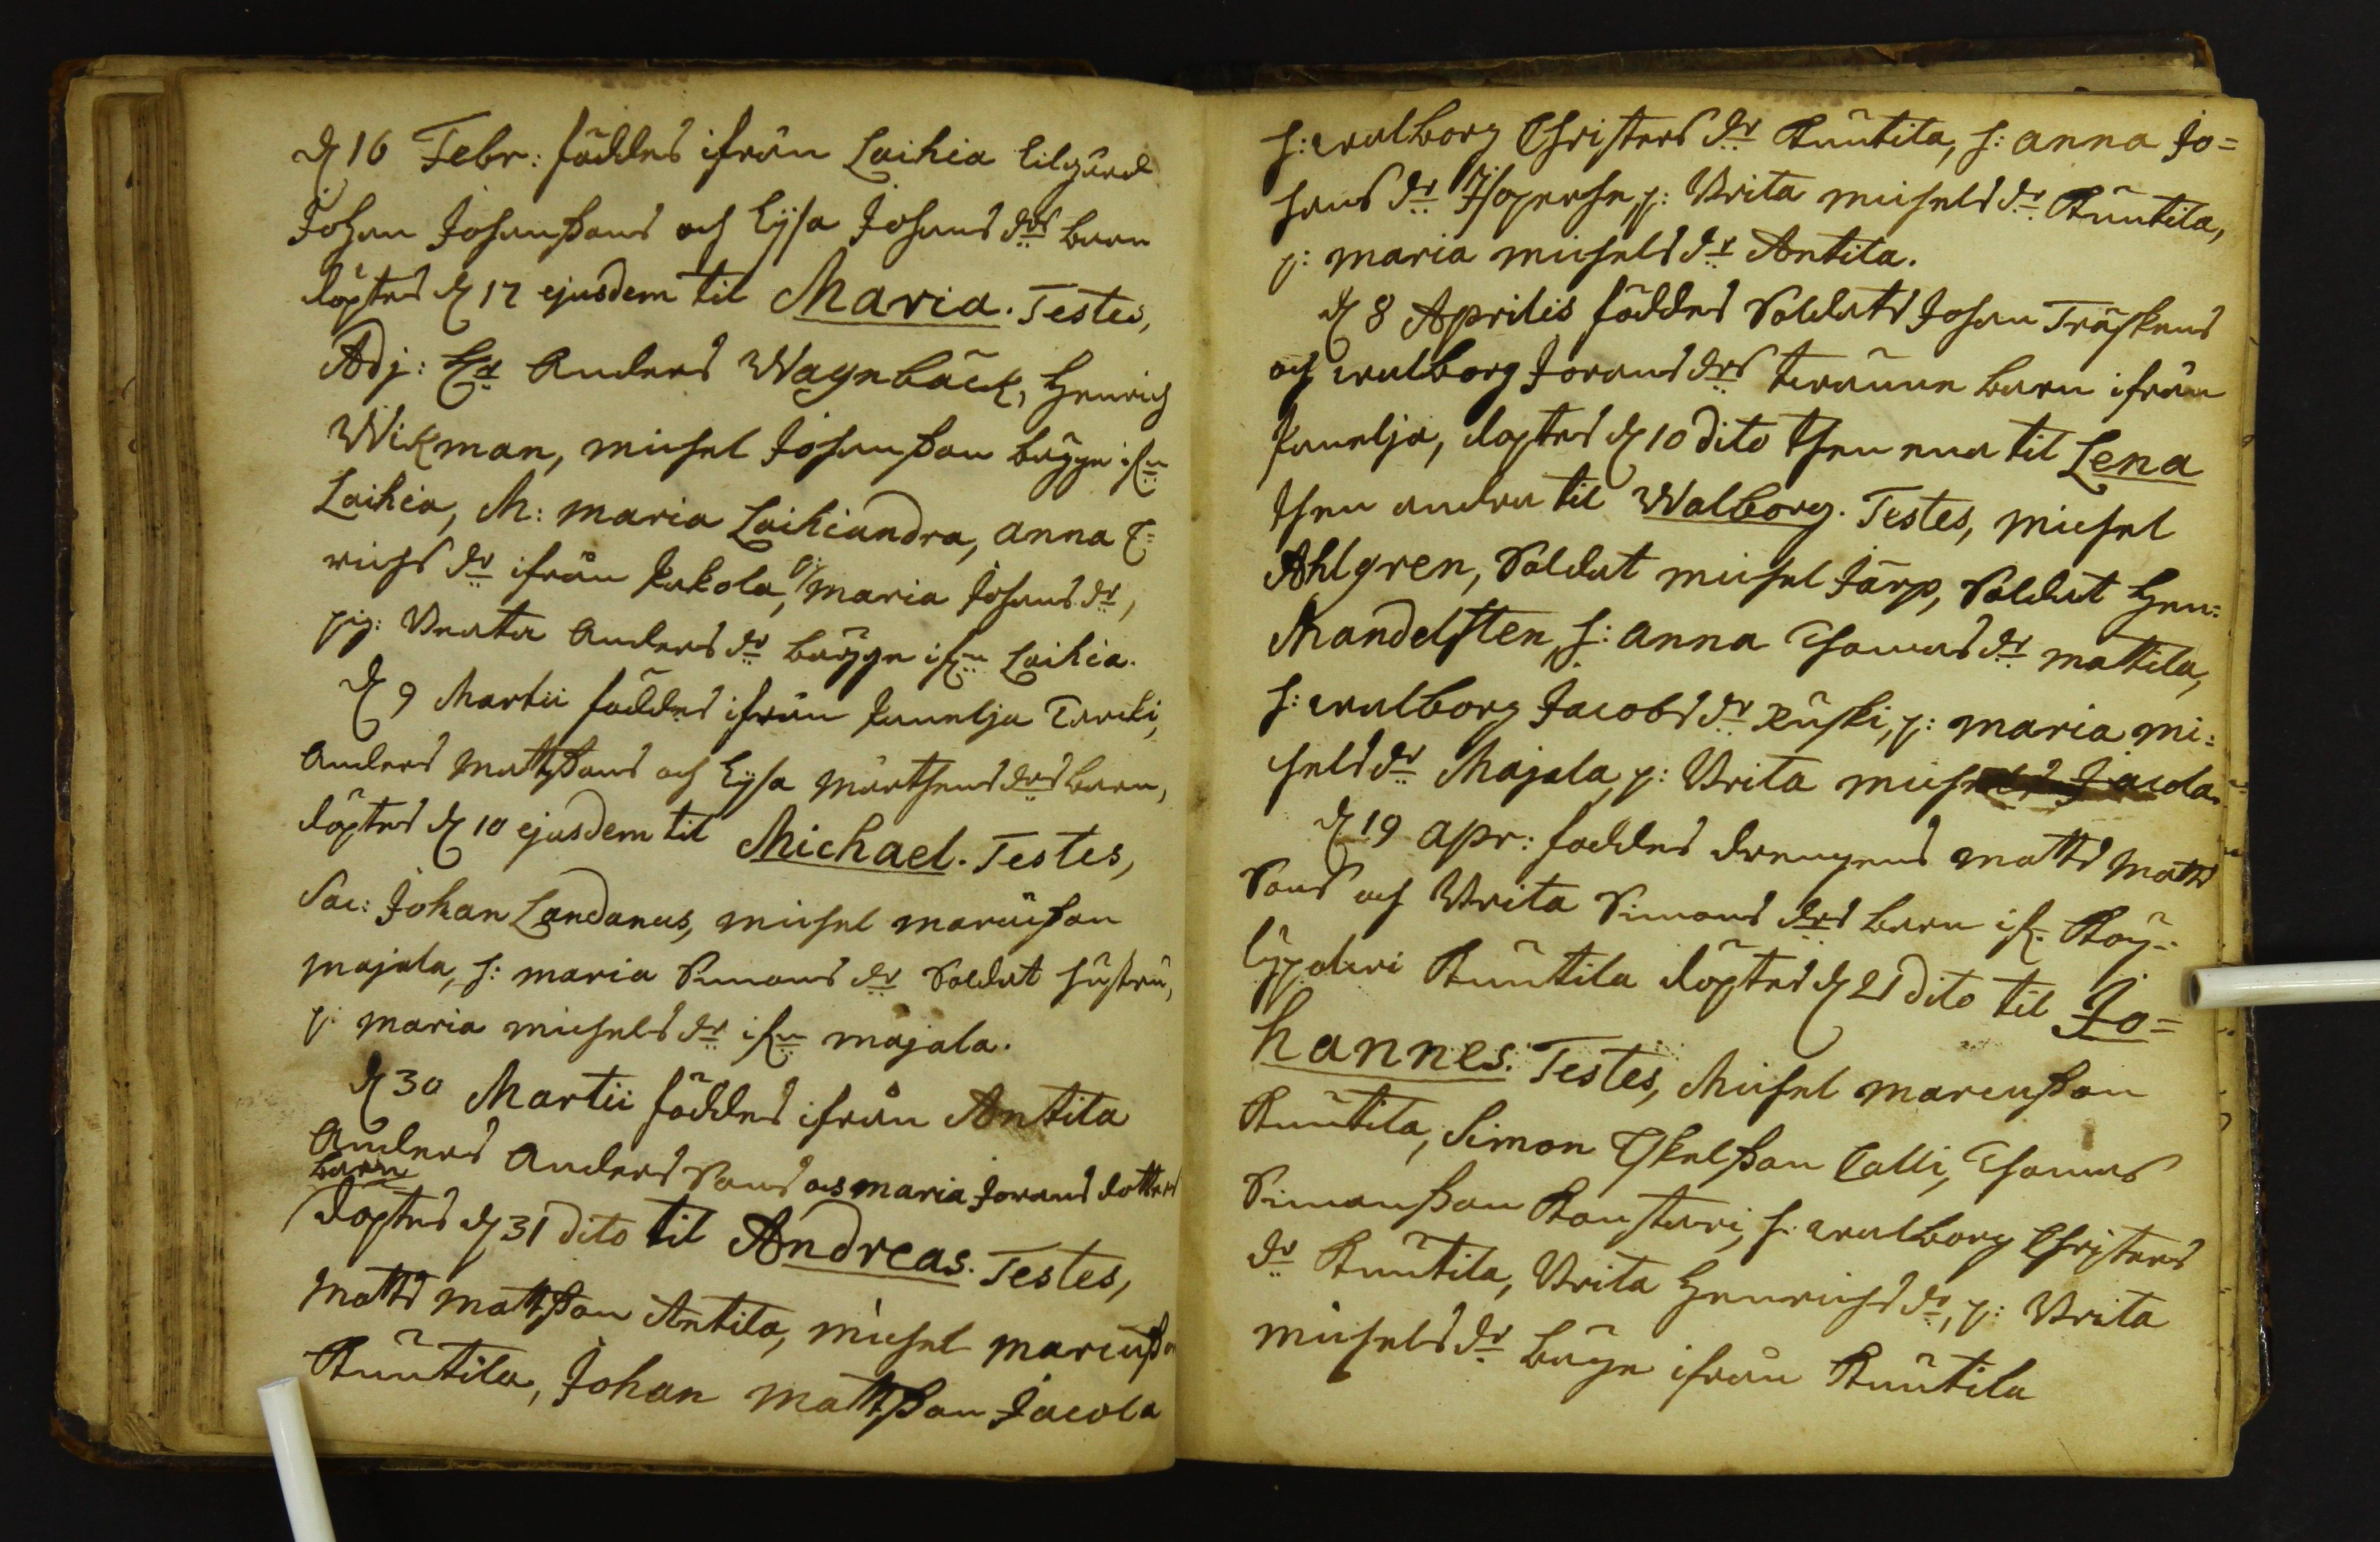 d 16 Febr: föddes ifrån Laihia Lilgård
Johan Johanßons och Lijsa Johans drs barn
döptes d 17 ejusdem til Maria. Testes,
Adj: Hr Anders Wagnbäck, Henrich
Wikman, Michel Johanßon bägge ifrn
Laihia, M: Maria Laihiandra, Anna E=
richs dr ifrån Jakola, Maria Johans dr,
pig: Beata Anders dr bägge ifrn Laihia.
d 9 Martii föddes ifrån Junelja Turcki,
Anders Mattßons och Lijsa Mårthens drs barn,
döptes d 10 ejusdem til Michael. Testes,
Sac: Johan Landanus, Michel Marcußon
Majala, h: Maria Simons dr Soldat hustru,
p: Maria Michels dr ifrn Majala.
d 30 Martii föddes ifrån Antila
Anders Anders Sons och Maria Jorans dotters
barn
döptes d 31 dito til Andreas. Testes,
Matts Mattßon Antila, Michel Marcußon
Ruutila, Johan Mattßon Jacola
h: Walborg Christers dr Ruutila, h: Anna Jo=
hans dr p: Brita Michels dr Ruutila,
p: Maria Michels dr Antila.
d 8 Aprilis föddes Soldats Johan Träskens
och Walborg Jorans drs twänne barn ifrån
Junelja, döptes d 10 dito then ena til Lena
then andra til Walborg. Testes, Michel
Ahlgren, Soldat Michel Järp, Soldat Hen:
Mandelsten, h: Anna Thomas dr Mattila,
h: Walborg Jacobs dr Ruski, p: Maria Mi=
chels dr Majala, p: Brita Michels Jacola.
d 19 Apr: föddes drengens Matts Matts
Sons och Brita Simons drs barn ifr. Röy=
Ruutila döptes d 21 dito til Jo=
hannes. Testes, Michel Marcußon
Ruutila, Simon Eskelßon Calli, Thomas
Simonßon Rontari, h: Walborg Christers
dr Ruutila, Brita Henrichs dr, p: Brita
Michels dr bäge ifrån Ruutila